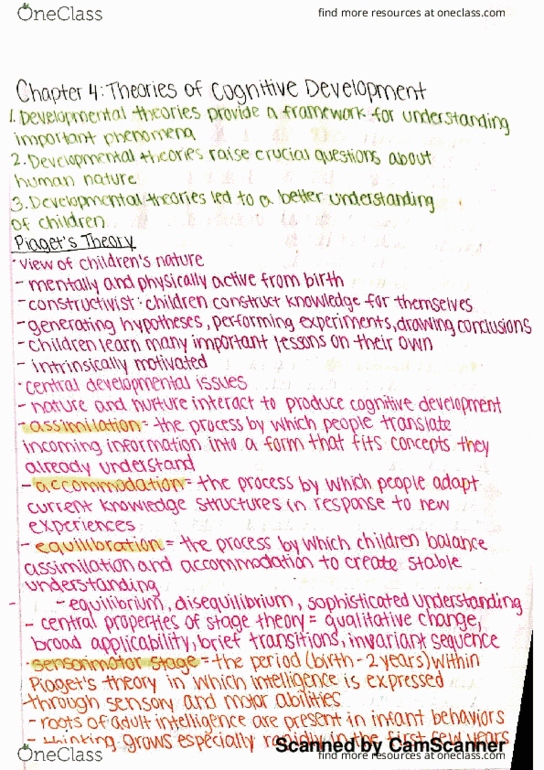 OneClass
find more resources at oneclass.com
Chapter 4: Theories of Cognitive Development
1. Developmental theories provide a framework for understanding
important phenomena
2. Developmental theories raise crucial questions about
human nature
3. Developmental theories led to a better understanding
of children
Piaget's Theory
· view of children's nature
- mentally and physically active from birth
- constructivist: children construct knowledge for themselves
- generating hypotheses, performing experiments, drawing conclusions
- children learn many important lessons on their own
- intrinsically motivated
· central developmental issues
- nature and nurture interact to produce cognitive development
- assimilation = the process by which people translate
incoming information into a form that fits concepts they
already understand
- accommodation = the process by which people adapt
current knowledge structures in response to new
experiences
- equilibration = the process by which children balance
assimilation and accommodation to create stable
understanding
- equilibrium, disequilibrium, sophisticated understanding
- central properties of stage theory = qualitative change,
broad applicability, brief transitions, invariant sequence
· sensorimotor stage = the period (birth - 2 years) within
Piaget's theory in which intelligence is expressed
through sensory and motor abilities
- roots of adult intelligence are present in infant behaviors
- thinking grows especially rapidly in the first few years
Scanned by CamScanner
OneClass
find more resources at oneclass.com